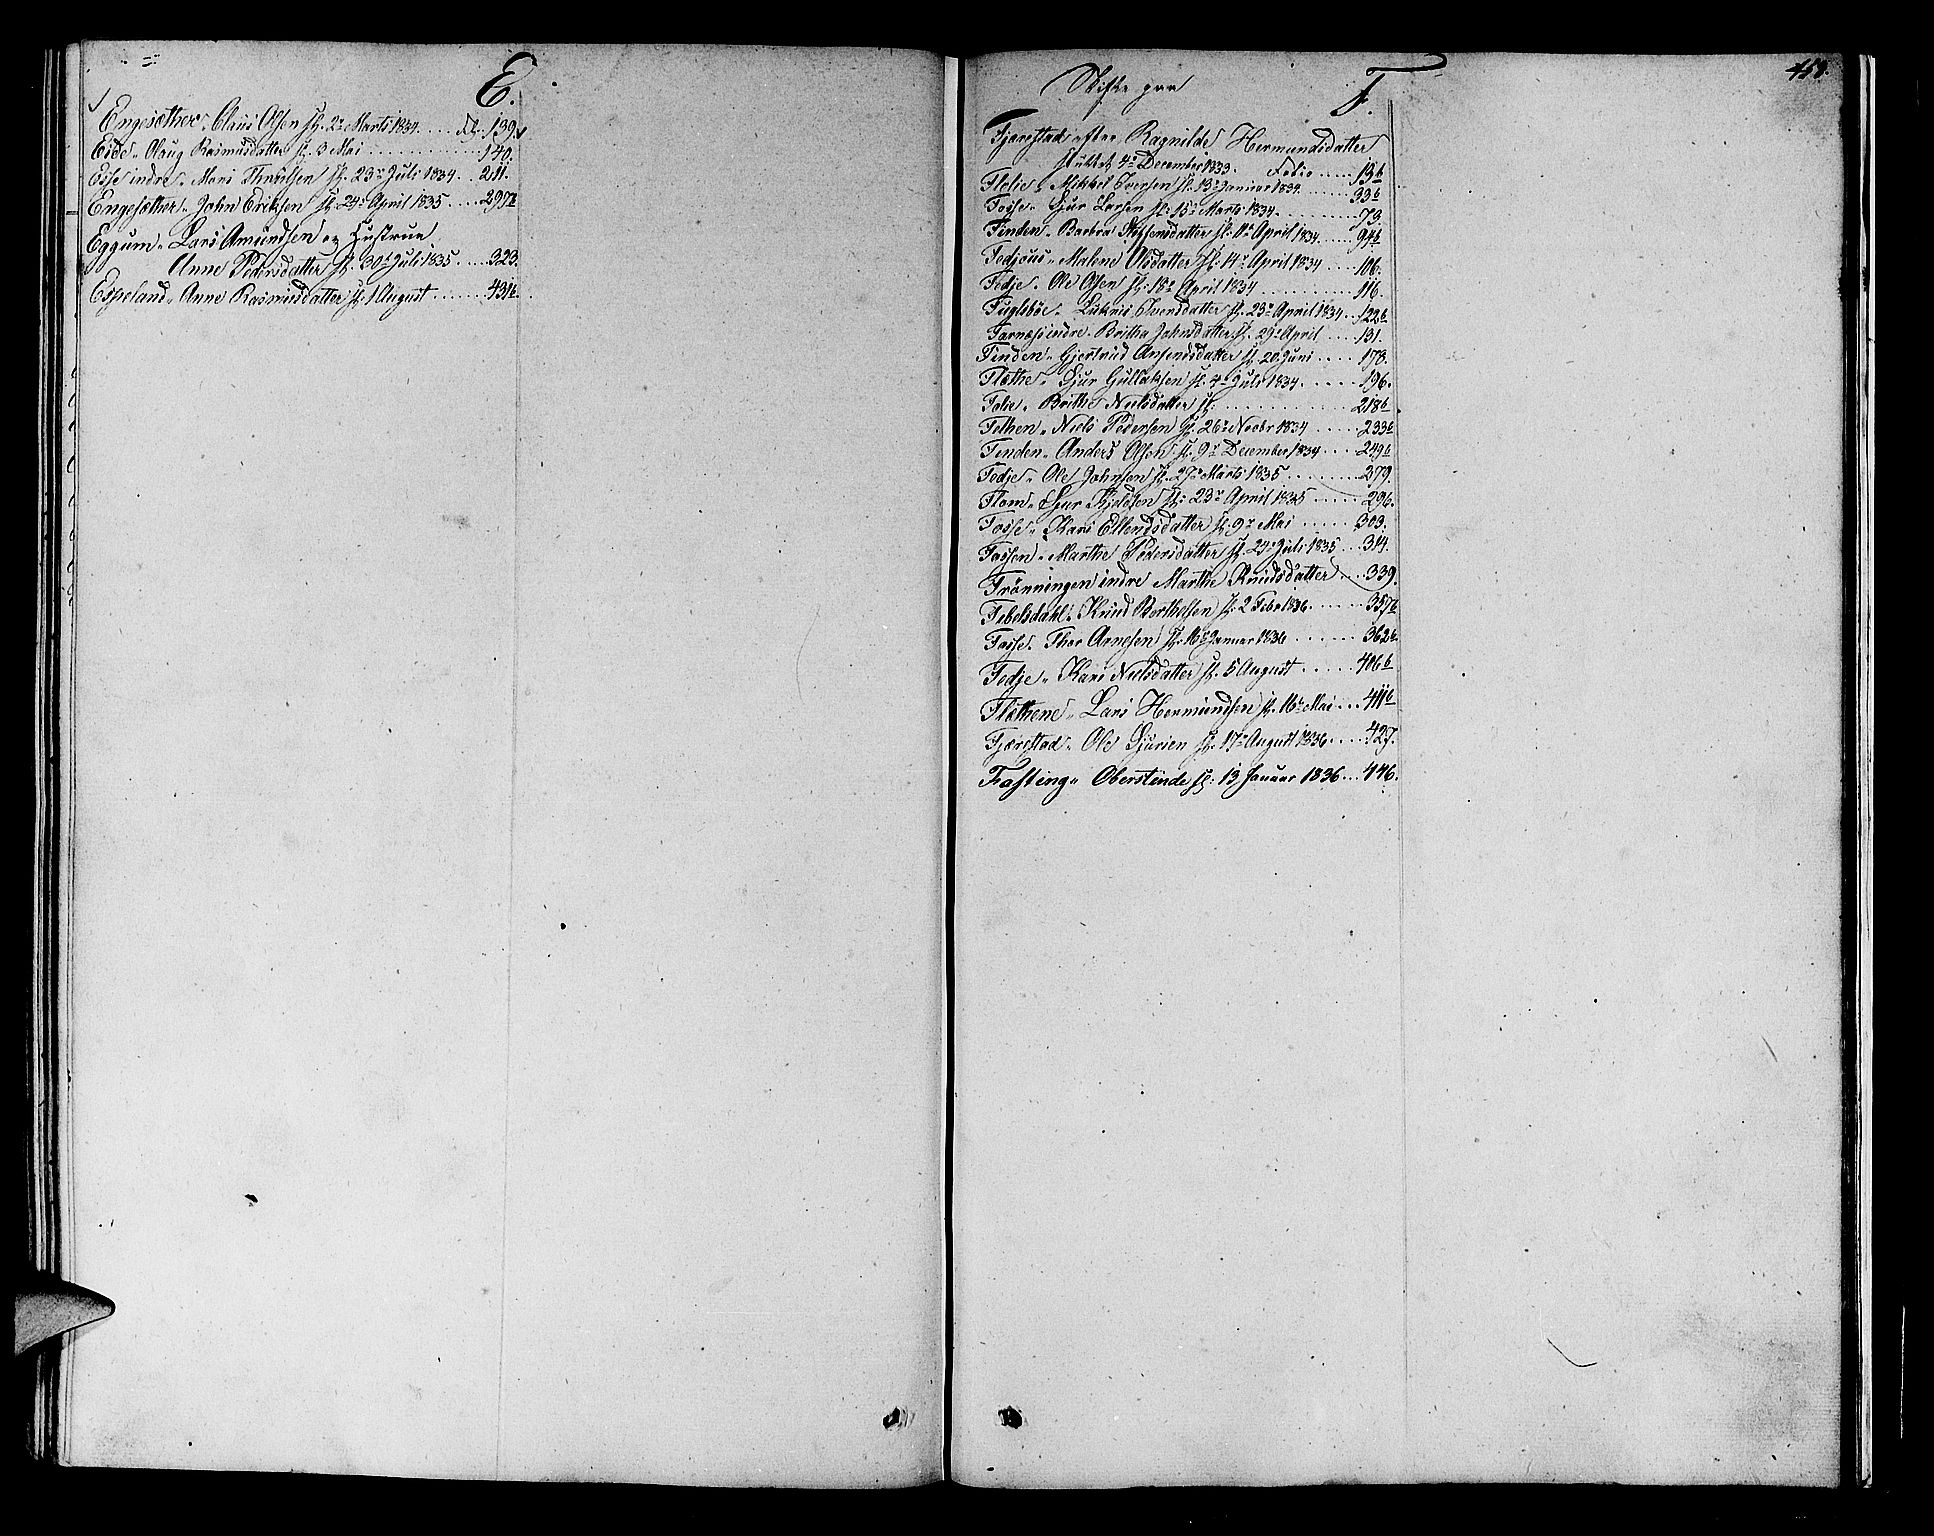 E.
Engesæther „ Claus Olsen sl. 2 Marts 1834 .... Fol. 139.
Eide „ Olaug Rasmusdatter sl. 3 Mai ............ 140.
Esse indre „ Mari Thrulsen sl. 23 Juli 1834 .. 211.
Engesæther „ John Eriksen sl. 24 April 1835 .... 297b
Eggum „ Lars Amundsen og Hustrue
Anne Pedersdatter sl. 30 Juli 1835 ..... 323.
Espeland „ Anne Rasmusdatter sl. 1 August ....... 431b
Skifte paa F. 459.
Fjærestad efter Ragnilde Hermundsdatter
sluttet 4 December 1833. Folio ..... 13b
Flolie „ Mikkel Iversen sl. 13 Januar 1834. ..... 33b
Fosse „ Sjur Larsen sl. 15 Marts 1834. ......... 73.
Finden „ Barbra Steffensdatter sl. 11 April 1834 ...... 94b
Fedjeus „ Malene Olsdatter sl. 14 April 1834 .... 106.
Fedje „ Ole Olsen sl. 18 April 1834 ........... 116.
Fuglsböe „ Lukris Iversdatter sl. 23 April 1834 .. 122b
Farnæs indre „ Britha Johnsdatter sl. 29 April .... 131.
Finden „ Gjertrud Amundsdatter sl. 20 Juni ..... 178.
Fløthe „ Sjur Gullaksen sl. 4 Juli 1834. ..... 196.
Folie „ Brithe Neelsdatter sl. ............. 218b
Felhen „ Niels Pedersen sl. 26 Novbr 1834 ...... 233b
Finden „ Anders Olsen sl. 9 December 1834 .... 249b
Fedje „ Ole Johnsen sl. 27 Marts 1835 ......... 279.
Flom „ Sjur Kjeldsen sl. 23 April 1835 ...... 296.
Fosse „ Kari Ellendsdatter sl. 9 Mai ...... 303.
Fossen „ Marthe Pedersdatter sl. 24 Juli 1835 ... 314.
Frönningen indre Marthe Knudsdatter .... 339.
Febelsdahl „ Knud Berthelsen sl. 2 Febr 1836 ...... 357b
Fosse „ Thor Arnesen sl. 16 Januar 1836 ....... 362b
Fedje „ Kari Nielsdatter sl. 5 August ...... 406b
Fløthene „ Lars Hermundsen sl. 16 Mai ... 411b
Fjærestad „ Ole Sjursen sl. 17 August 1836 ..... 427.
Fasting „ Oberstinde sl. 13 Januar 1836 ... 446.